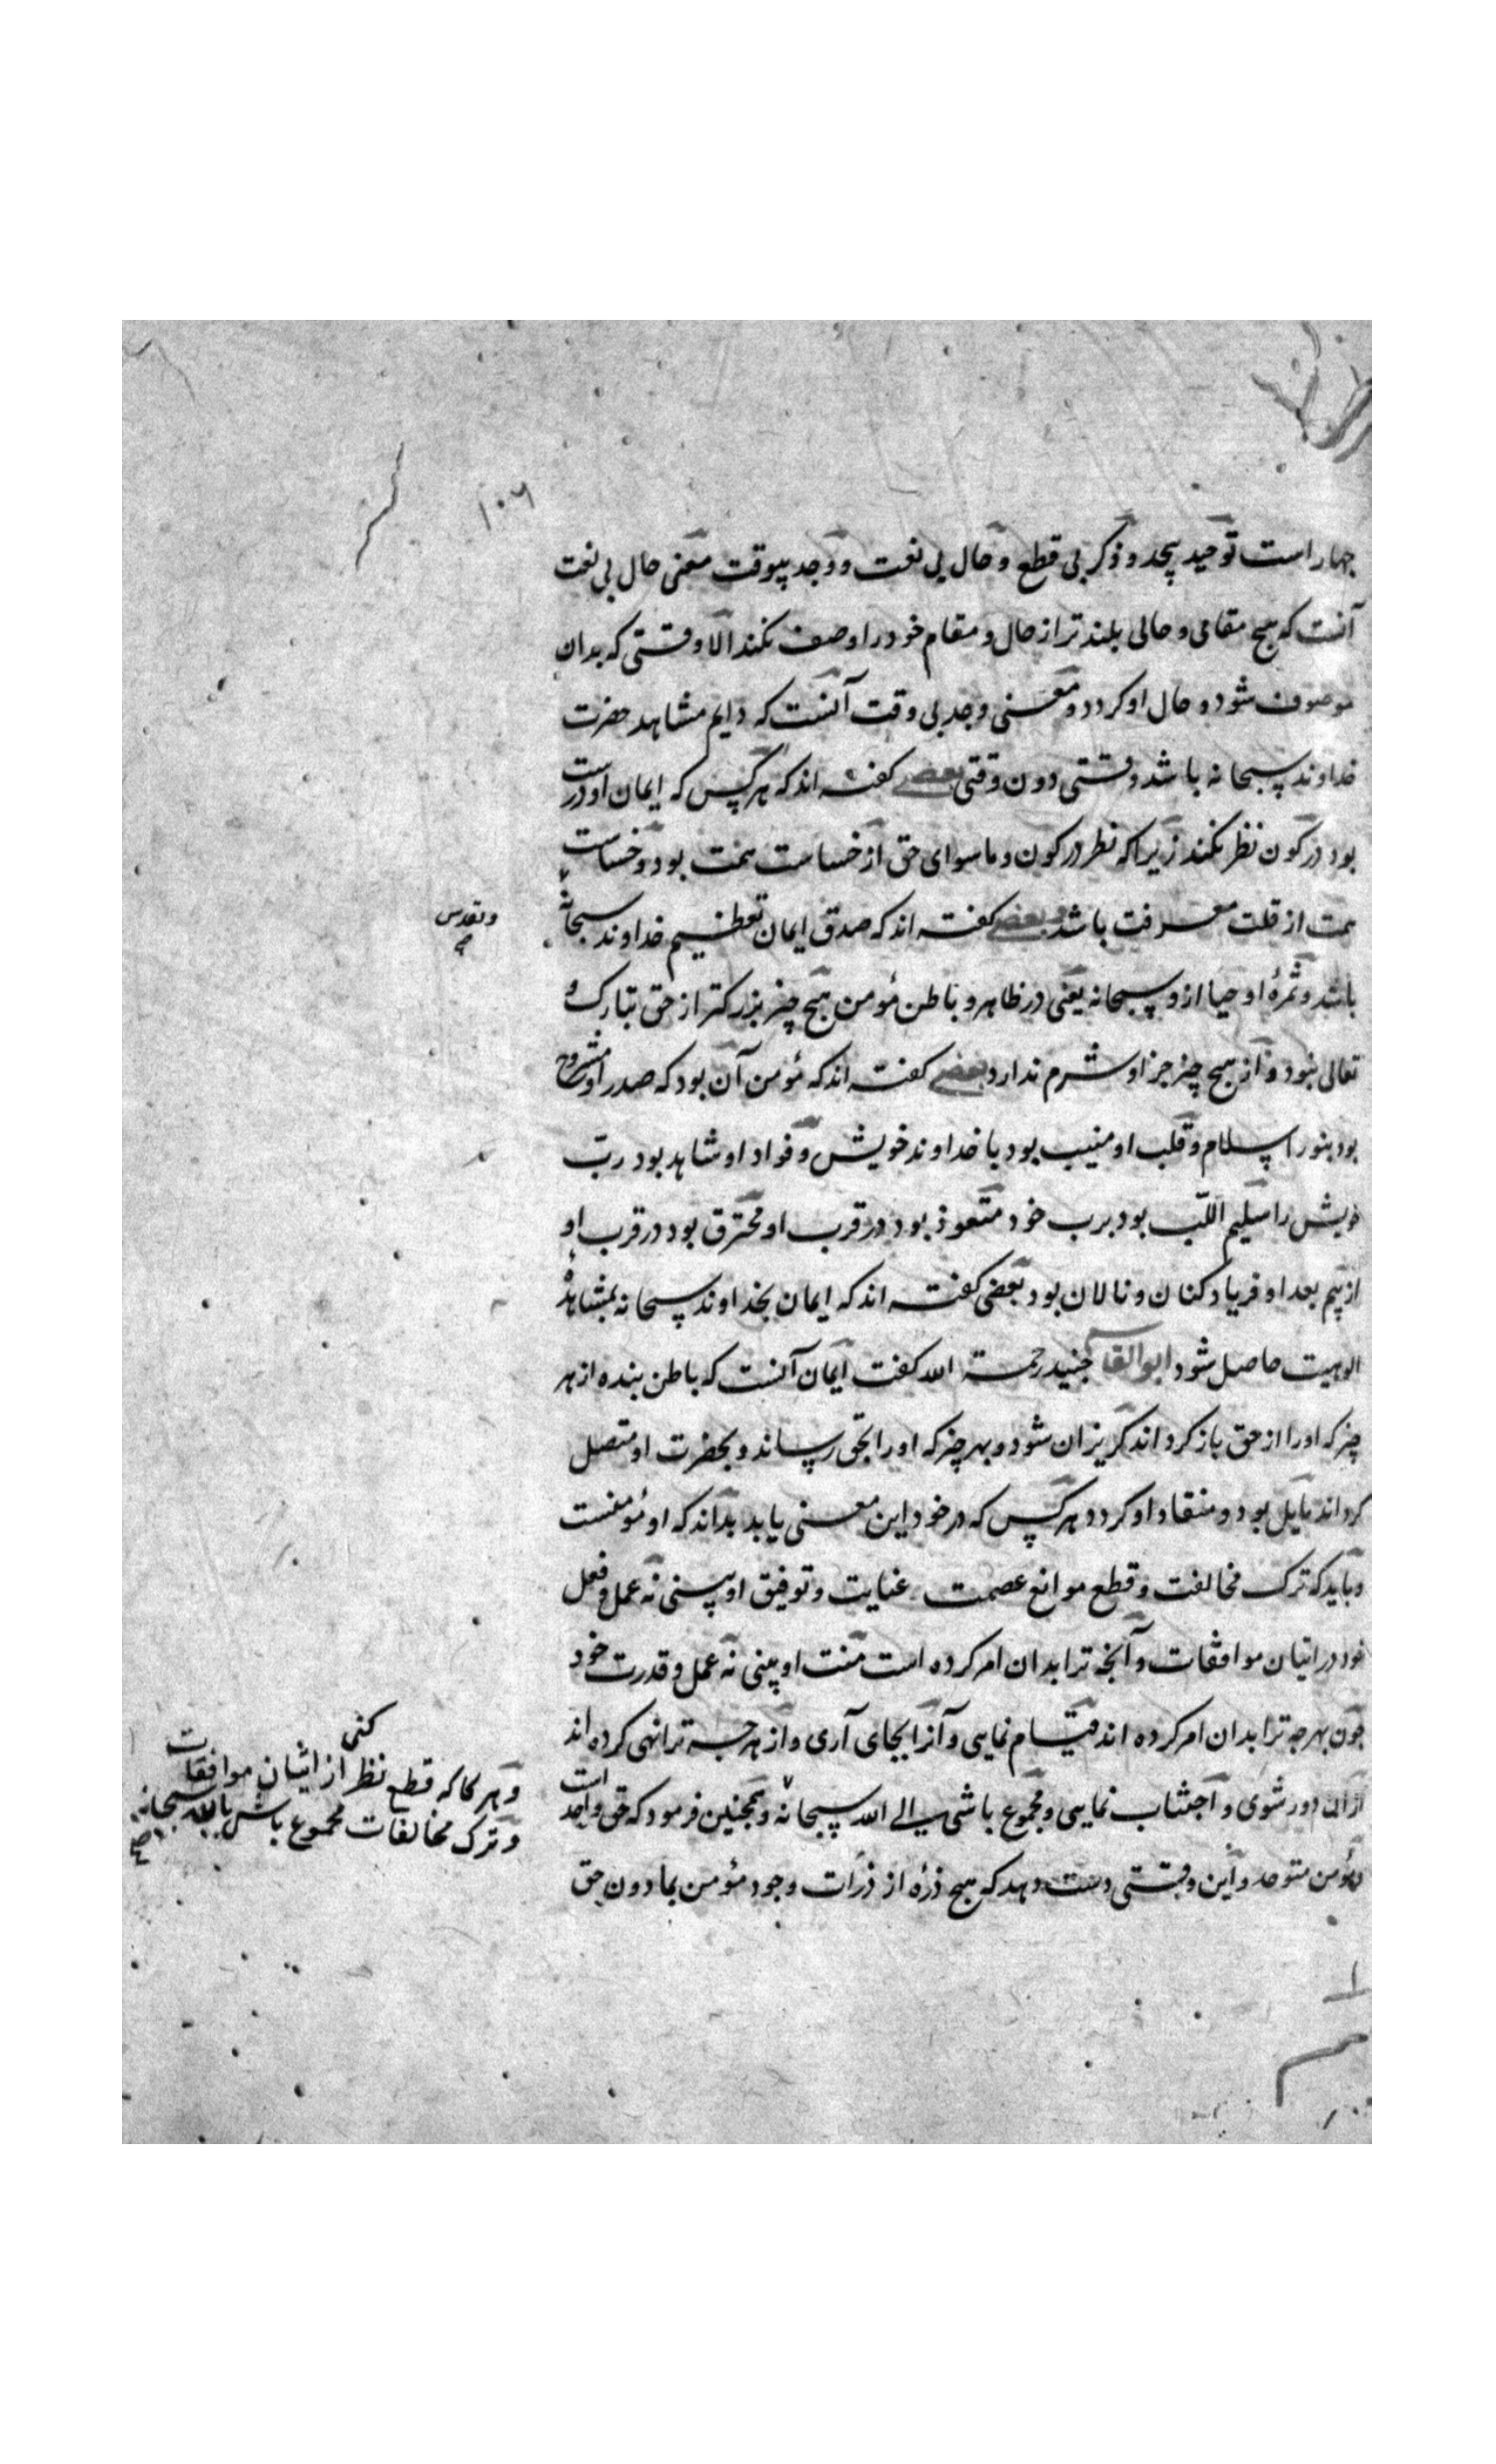 ۱۰۶
چهار است توحید بیحد و ذکر بی قطع و حال بی نعت و وجد بیوقت معنی حال بی نعت
آنست که هیچ مقامی و حالی بلندتر از حال و مقام خود را وصف نکند الا وقتی که بدان
موصوف شود و حال او کردد و معنی وجد بی وقت آنست که دایم مشاهد حضرت
خداوند سبحانه باشد وقتی دون وقتی بعضی کفته اند که هر کس که ایمان او درست
بود در کون نظر نکند زیرا که نظر در کون و ماسوای حق از خساست همت بود و خساست
همت از قلت معرفت باشد و بعضی کفته اند که صدق ایمان تعظیم خداوند سبحانه
و تقدس
صح
باشد و ثمرهٔ او حیا از و سبحانه یعنی در ظاهر و باطن مؤمن هیچ چیز بزرکتر از حق تبارک و
تعالی نبود و از هیچ چیز جز او شرم ندارد بعضی کفته اند که مؤمن آن بود که صدر او مشروح
بود بنور اسلام و قلب او منیب بود با خداوند خویش و فواد او شاهد بود ربّ
خویش را سلیم اللّب بود برب خود متعوذ بود در قرب او محترق بود در قرب او
از بیم بعد او فریاد کنان و نالان بود بعضی کفته اند که ایمان بخداوند سبحانه بمشاهدهٔ
الوهیت حاصل شود ابوالقاسم جنید رحمة الله کفت ایمان آنست که باطن بنده از هر
چیز که او را از حق باز کرداند کریزان شود و بهر چیز که او را بحق رساند و بحضرت او متصل
کرداند مایل بود و منقاد او کردد هر کس که در خود این معنی یابد بداند که او مؤمنست
و باید که ترک مخالفت و قطع موانع عصمت عنایت و توفیق او بینی نه عمل و فعل
خود در اتیان موافقات و آنچه ترا بدان امر کرده است منت او بینی نه عمل و قدرت خود
چون بهرچه ترا بدان امر کرده اند قیام نمایی و آنرا بجای آری و از هرچه ترا نهی کرده اند
از آن دور شوی و اجتناب نمایی و مجموع باشی الی الله سبحانه و همچنین فرمود که حق واحد است
و مؤمن متوحد و این وقتی دست دهد که هیچ ذرهٔ از ذرّات وجود مؤمن بمادون حق
کنی
و هرکاکه قطع نظر از اتیان موافقات
و ترک مخالفات مجموع باش بالله سبحانه
صح